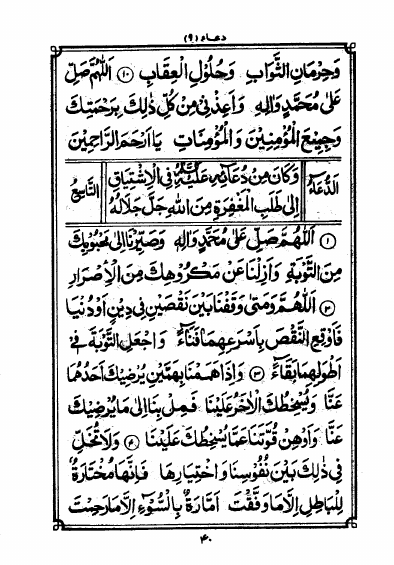 دعاء (۹)
وَحِرْمَانِ الثَّوَابِ وَحُلُوْلِ الْعِقَابِ ⑩ اَللّٰهُمَّ صَلِّ
عَلٰى مُحَمَّدٍ وَاٰلِهٖ وَاَعِذْنِىْ مِنْ كُلِّ ذٰلِكَ بِرَحْمَتِكَ
وَجَمِيْعَ الْمُؤْمِنِيْنَ وَالْمُؤْمِنَاتِ يَا اَرْحَمَ الرَّاحِمِيْنَ
اَلدُّعَاءُ وَكَانَ مِنْ دُعَائِهٖ عَلَيْهِ السَّلَامُ فِى الْاِشْتِيَاقِ التَّاسِعُ
اِلٰى طَلَبِ الْمَغْفِرَةِ مِنَ اللهِ جَلَّ جَلَالُهُ
① اَللّٰهُمَّ صَلِّ عَلٰى مُحَمَّدٍ وَاٰلِهٖ وَصَيِّرْنَا اِلٰى مَحْبُوْبِكَ
مِنَ التَّوْبَةِ وَاَزِلْنَا عَنْ مَكْرُوْهِكَ مِنَ الْاِصْرَارِ
② اَللّٰهُمَّ وَمَتٰى وَقَفْنَا بَيْنَ نَقْصَيْنِ فِىْ دِيْنٍ اَوْ دُنْيَا
فَاَوْقِعِ النَّقْصَ بِاَسْرَعِهِمَا فَنَاءً وَاجْعَلِ التَّوْبَةَ فِىْ
اَطْوَلِهِمَا بَقَاءً ③ وَاِذَا هَمَمْنَا بِهَمَّيْنِ يُرْضِيْكَ اَحَدُهُمَا
عَنَّا وَيُسْخِطُكَ الْاٰخَرُ عَلَيْنَا فَمِلْ بِنَا اِلٰى مَا يُرْضِيْكَ
عَنَّا وَاَوْهِنْ قُوَّتَنَا عَمَّا يُسْخِطُكَ عَلَيْنَا ④ وَلَا تُخَلِّ
فِىْ ذٰلِكَ بَيْنَ نُفُوْسِنَا وَاخْتِيَارِهَا فَاِنَّهَا مُخْتَارَةٌ
لِلْبَاطِلِ اِلَّا مَا وَفَّقْتَ اَمَّارَةٌ بِالسُّوْءِ اِلَّا مَا رَحِمْتَ
۴۰